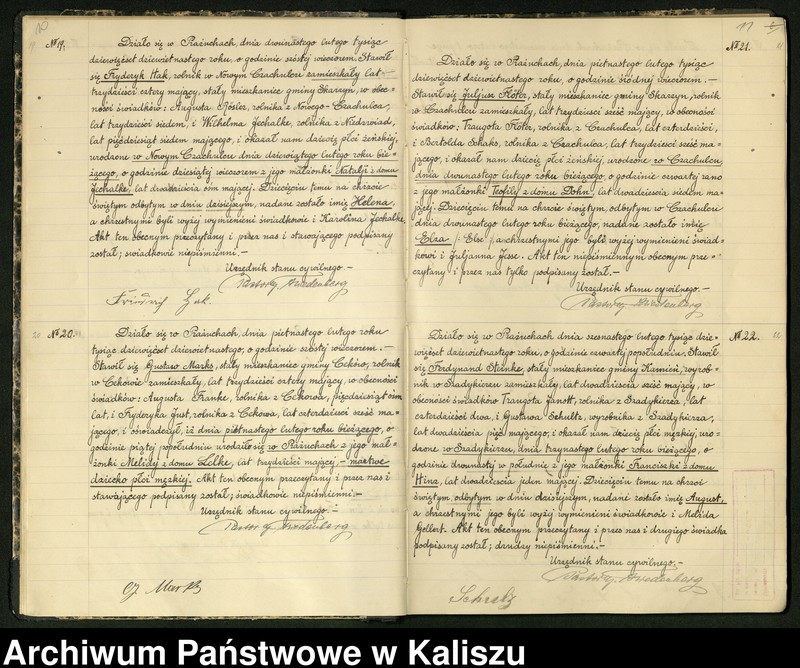 10
№ 19.
Działo się w Prażuchach, dnia dwunastego lutego tysiąc
dziewięćset dziewiętnastego roku, o godzinie szóstej wieczorem. Stawił
się Fryderyk Hak, rolnik w Nowym Czachulcu zamieszkały lat
trzydzieści cztery mający, stały mieszkaniec gminy Skarzyn, w obec-
ności świadków: Augusta Rösler, rolnika z Nowego-Czachulca,
lat trzydzieści siedem, i Wilhelma Jeschalke, rolnika z Niedźwiad,
lat pięćdziesiąt siedem mającego, i okazał nam dziecię płci żeńskiej,
urodzone w Nowym Czachulcu dnia dziewiątego lutego roku bie-
żącego, o godzinie dziesiątej wieczorem z jego małżonki Natalji z domu
Jeschalke, lat dwadzieścia ośm mającej. Dziecięciu temu na chrzcie
świętym odbytym w dniu dzisiejszym, nadane zostało imię Helena,
a chrzestnymi byli wyżej wymienieni świadkowie i Karolina Jeschalke.
Akt ten obecnym przeczytany i przez nas i stawającego podpisany
został; świadkowie niepiśmienni.—
Urzędnik stanu cywilnego.—
№ 20.
Działo się w Prażuchach, dnia piętnastego lutego roku
tysiąc dziewięćset dziewiętnastego, o godzinie szóstej wieczorem.—
Stawił się Gustaw Marks, stały mieszkaniec gminy Ceków, rolnik
w Cekowie zamieszkały, lat trzydzieści cztery mający, w obecności
świadków: Augusta Franke, rolnika z Cekowa, pięćdziesiąt ośm
lat, i Fryderyka Just, rolnika z Cekowa, lat czterdzieści sześć ma-
jącego, i oświadczył, iż dnia piętnastego lutego roku bieżącego, o
godzinie piątej popołudniu urodziło się w Prażuchach z jego mał-
żonki Melidy z domu Lilke, lat trzydzieści mającej,— martwe
dziecko płci męskiej. Akt ten obecnym przeczytany i przez nas i
stawającego podpisany został; świadkowie niepiśmienni.—
Urzędnik stanu cywilnego.—
11
№ 21.
Działo się w Prażuchach, dnia piętnastego lutego tysiąc
dziewięćset dziewiętnastego roku, o godzinie siódmej wieczorem.—
Stawił się Juljusz Flöter, stały mieszkaniec gminy Skarzyn, rolnik
w Czachulcu zamieszkały, lat trzydzieści sześć mający, w obecności
świadków: Traugota Flöter, rolnika z Czachulca, lat czterdzieści,
i Bertolda Schaks, rolnika z Czachulca, lat trzydzieści sześć ma-
jącego, i okazał nam dziecię płci żeńskiej, urodzone w Czachulcu,
dnia dwunastego lutego roku bieżącego, o godzinie czwartej rano
z jego małżonki Teofili z domu Dohn, lat dwadzieścia siedem ma-
jącej. Dziecięciu temu na chrzcie świętym, odbytym w Czachulcu
dnia dwunastego lutego roku bieżącego, nadane zostało imię
Elza /: Else :/, a chrzestnymi jego byli wyżej wymienieni świad-
kowi i Juljanna Jesse. Akt ten niepiśmiennym obecnym prze-
czytany i przez nas tylko podpisany został.—
Urzędnik stanu cywilnego.—
№ 22.
Działo się w Prażuchach dnia szesnastego lutego tysiąc dzie-
więćset dziewiętnastego roku, o godzinie czwartej popołudniu. Stawił
się Ferdynand Steinke, stały mieszkaniec gminy Kamień, wyrob-
nik w Szadykierzu zamieszkały, lat dwadzieścia sześć mający, w
obecności świadków Traugota Janott, rolnika z Szadykierza, lat
czterdzieści dwa, i Gustawa Schultz, wyrobnika z Szadykierza,
lat dwadzieścia pięć mającego, i okazał nam dziecię płci męskiej, uro-
dzone w Szadykierzu, dnia trzynastego lutego roku bieżącego, o
godzinie dwunastej w południe z jego małżonki Franciszki z domu
Hinz, lat dwadzieścia jeden mającej. Dziecięciu temu na chrzci
świętym, odbytym w dniu dzisiejszym, nadane zostało imię August,
a chrzestnymi jego byli wyżej wymienieni świadkowie i Melida
Gellert. Akt ten obecnym przeczytany i przez nas i drugiego świadka
podpisany został; drudzy niepiśmienni.—
Urzędnik stanu cywilnego.—
Archiwum Państwowe w Kaliszu